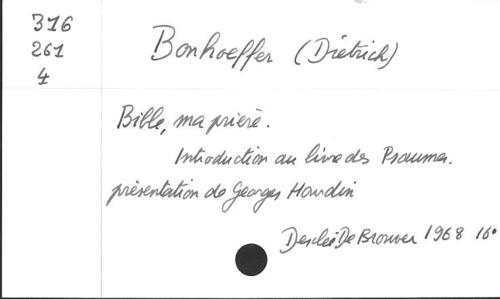 316
261
4
Bonhoeffer (Dietrich)
Bible, ma prière.
Introduction au livre des Psaumes.
présentation de Georges Hourdin
Desclée De Brouwer 1968 16°